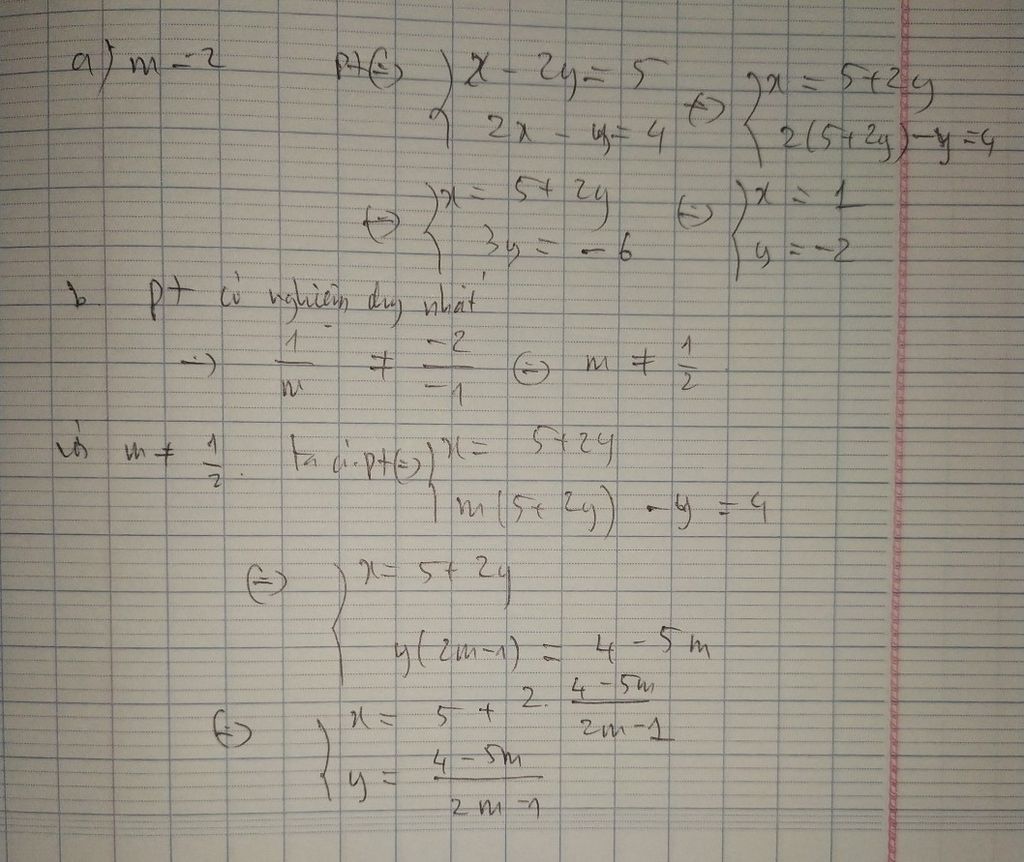 a) m = 2 pt⇔ { x - 2y = 5 ⇔ { x = 5+2y
2x - y = 4 2(5+2y) - y = 4
⇔ { x = 5+2y ⇔ { x = 1
3y = -6 y = -2
b. pt có nghiệm duy nhất
→ 1/m ≠ -2/-1 ⇔ m ≠ 1/2
với m ≠ 1/2. ta có. pt⇔ { x = 5+2y
m(5+2y) - y = 4
⇔ { x = 5+2y
y(2m-1) = 4 - 5m
⇔ { x = 5 + 2. 4-5m/2m-1
y = 4-5m/2m-1